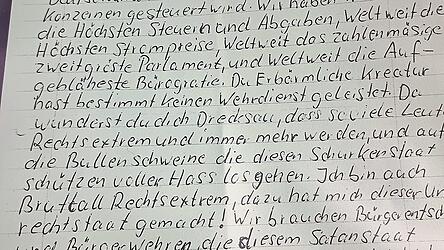 Konzernen gesteuert wird. Wir haben
die Höchsten Steuern und Abgaben, Weltweit die
Höchsten Strompreise, Weltweit das zahlenmäsige
zweitgröste Parlament, und Weltweit die Auf-
geblähteste Bürogratie. Du Erbärmliche Kreatur
hast bestimmt keinen Wehrdienst geleistet. Da
wunderst du dich Drecksau, dass soviele Leut
Rechtsextrem und immer mehr werden, und auf
die Bullenschweine die diesen Schurkenstaat
schützen voller Hass losgehen. Ich bin auch
Bruttall Rechtsextrem, dazu hat mich dieser Un
rechtstaat gemacht! Wir brauchen Bürgerentsch
und Bürgerwehren, die diesem Satanstaat